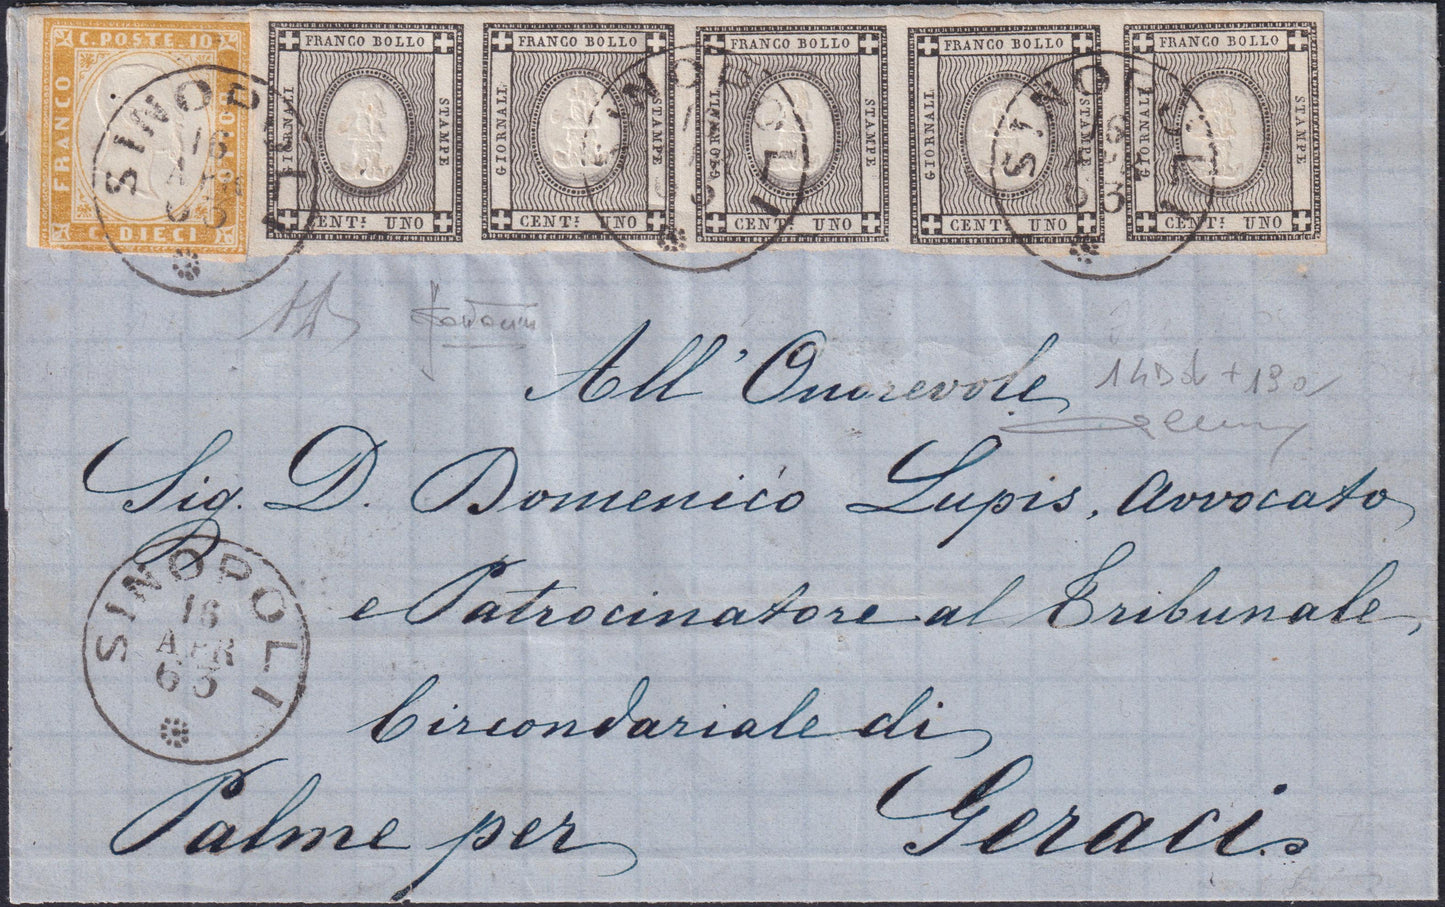 C. POSTE. 10
FRANCO
BOLLO
C. DIECI
FRANCO BOLLO
GIORNALI
STAMPE
CENT.I UNO
FRANCO BOLLO
GIORNALI
STAMPE
CENT.I UNO
FRANCO BOLLO
GIORNALI
STAMPE
CENT.I UNO
FRANCO BOLLO
GIORNALI
STAMPE
CENT.I UNO
FRANCO BOLLO
GIORNALI
STAMPE
CENT.I UNO
SINOPOLI
16
APR
63
SINOPOLI
SINOPOLI
16
APR
63
All' Onorevole
Sig. D. Domenico Lupis, Avvocato
e Patrocinatore al Tribunale
Circondariale di
Palme per Geraci
SINOPOLI
16
APR
63